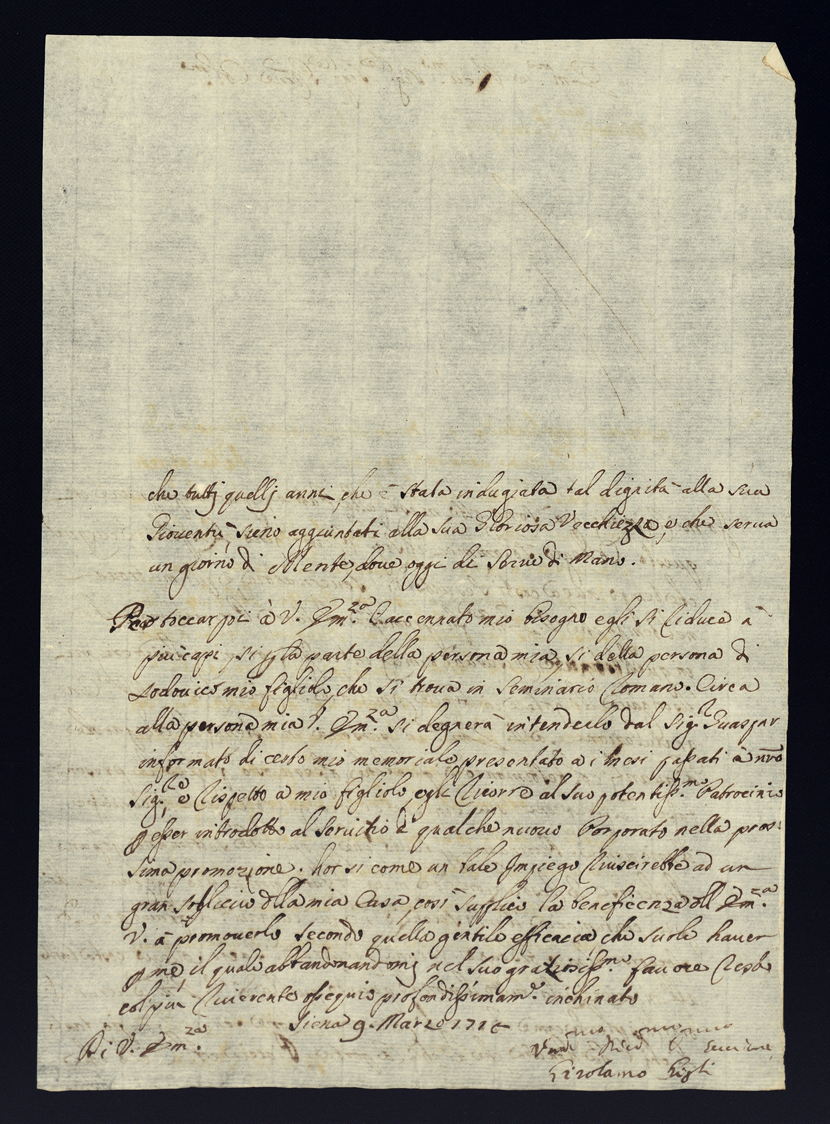 che tuttj quellj anni, che è stata indugiata tal dignità alla sua
Gioventù sieno aggiuntati alla sua Gloriosa Vecchiezza, e che serva
un giorno di Mente, dove oggi di serve di Mano.
Per toccar poi à V. Em.za l'accennato mio bisogno egli si riduce à
più capi, sì p la parte della persona mia, sì della persona di
Lodovico mio figliolo, che si trova in Seminario Romano. Circa
alla persona mia V. Em.za si degnerà intenderlo dal Sig.r Guaspar
informato di certo mio memoriale, presentato a i mesi passati à nro
Sig.re, e rispetto a mio figliolo, egli ricorre al suo potentiss.mo Patrocinio
p esser introdotto al servitio di qualche nuovo Porporato nella pros
sima promozione. hor sì come un tale Impiego riuscirebbe ad un
gran sollievo della mia Casa, così supplico la beneficenza dell Em.za
V. à promoverlo secondo quella gentile efficacia che suole haver
p me, il quale abbandonandomj nel suo gratiosiss.mo favore resto
col più riverente ossequio profondissimam.e inchinato
Siena 9. Marzo 171
Di V. Em.za
Girolamo Gigli